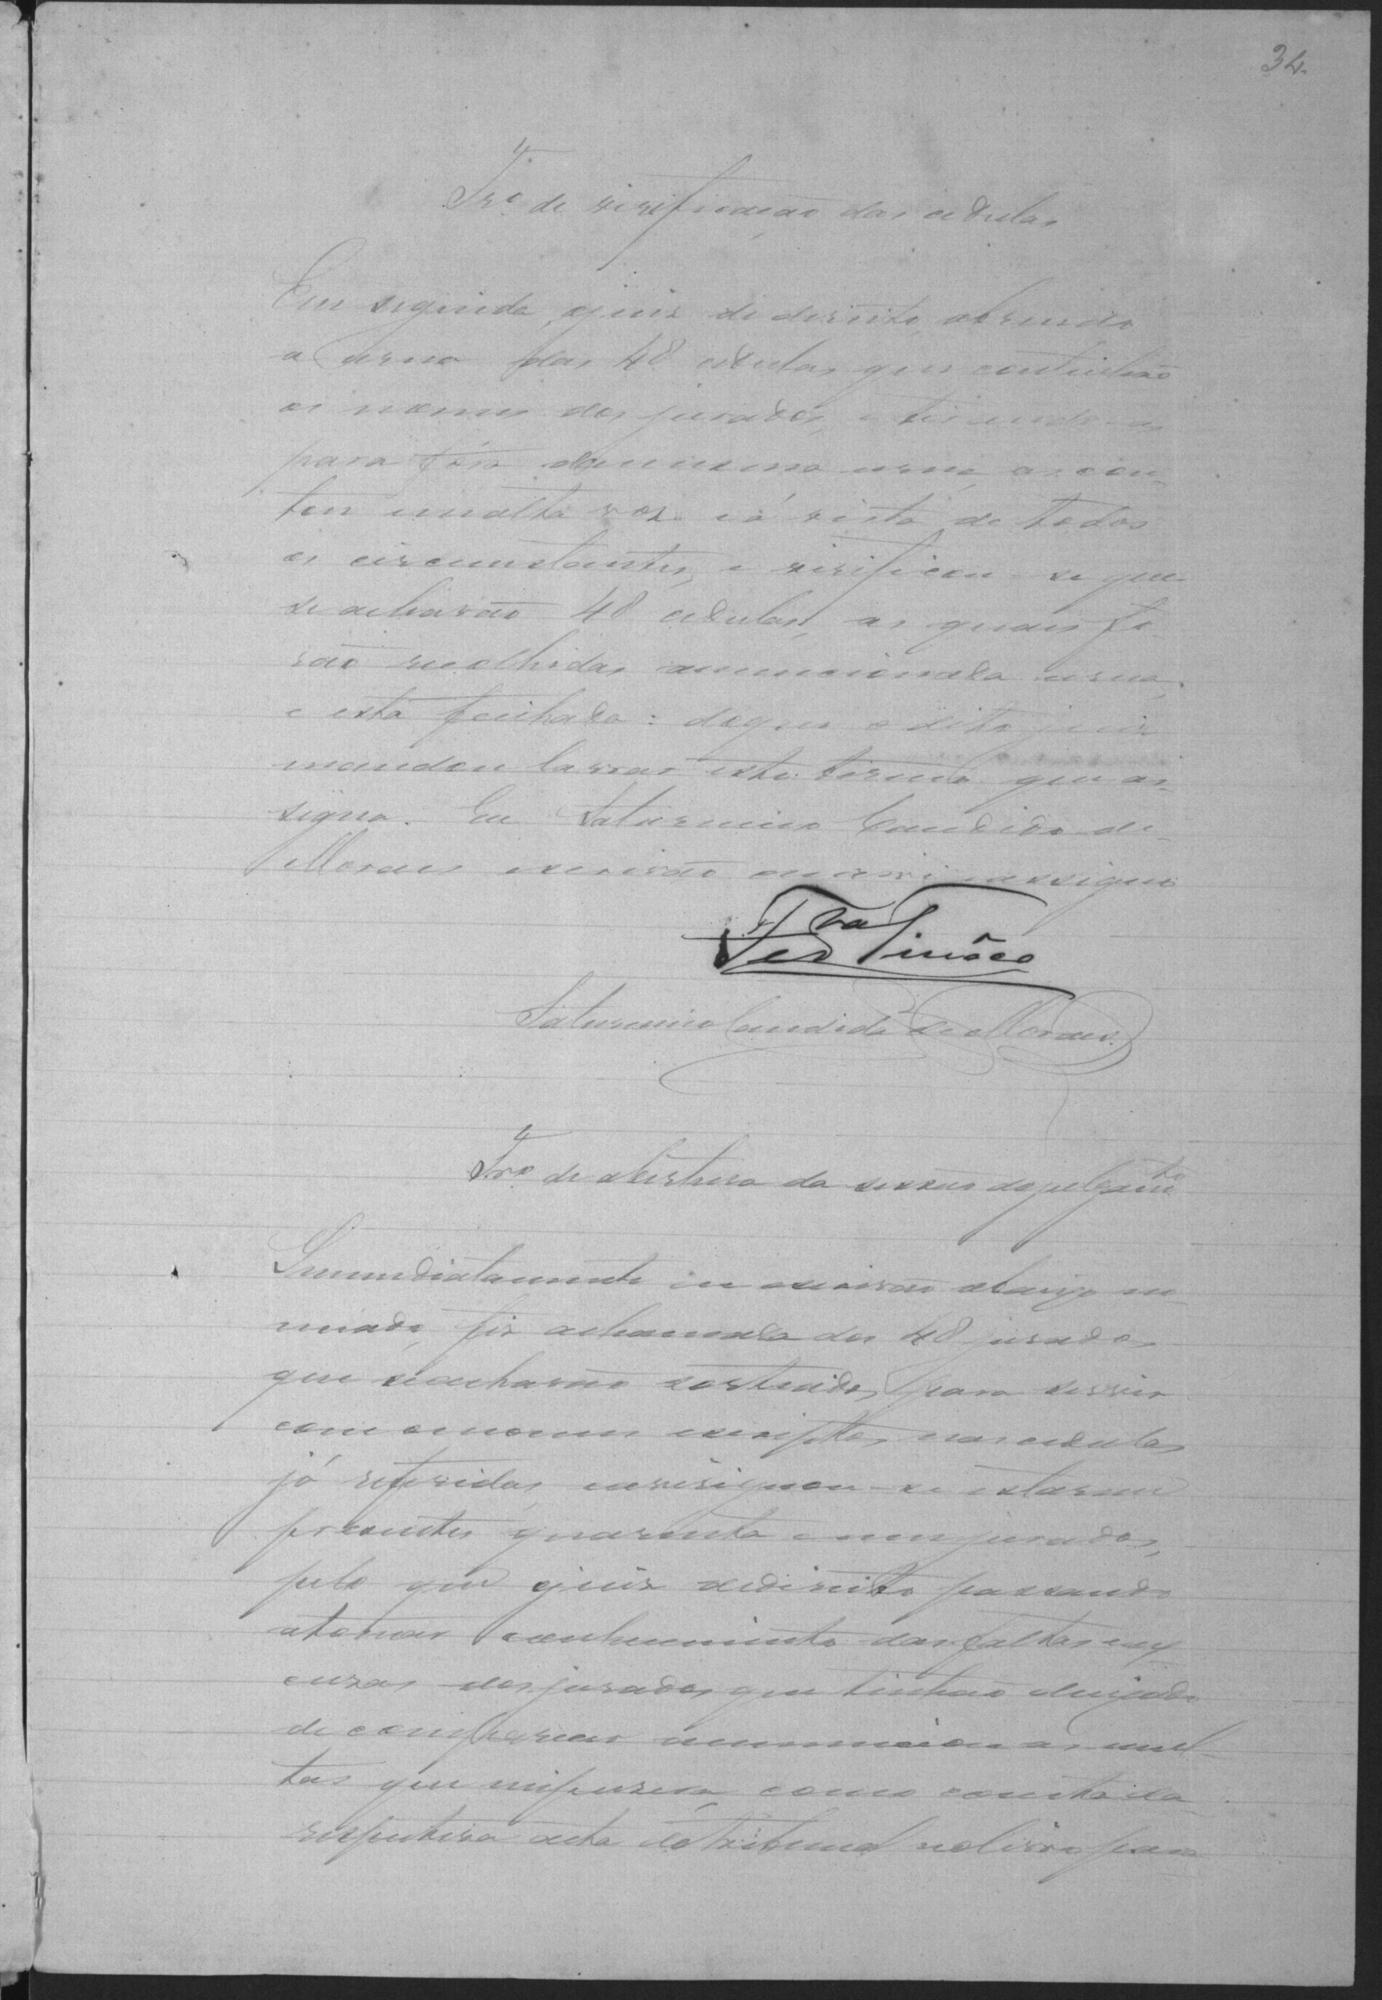 34
Tr.º de virificação das cedulas
Em seguida, o juiz de direito abrindo
a urna das 48 cedulas, que continhão
os nomes dos jurados, e tirando-as
para fóra da mesma urna, as con-
tou em alta voz e á vista de todos
os circunstantes, e virificou-se que
se acharão 48 cedulas, as quais fo-
rão recolhidas a mencionada urna,
e esta feichada: do que o dito juiz
mandou lavrar este termo que as-
signa. Eu Saturnino Candido de
Moraes escrivão escrevi e assigno
Saturnino Candido de Moraes.
Tr.º de abertura da sessão do julgam.to
Immediatamente eu escrivão abaixo no-
miado, fiz a chamada dos 48 jurados
que se acharão sorteados, para servir
com os nomes escriptos nas cedulas
já referidas, e verificou-se estarem
presentes quarenta e um jurados,
pelo que o juiz de direito passando
a tomar conhecimento das faltas e es-
cuzas dos jurados que tinhão deixado
de comparecer annunciou as mul-
tas que impusera, como consta da
respectiva acta do tribunal no livro para